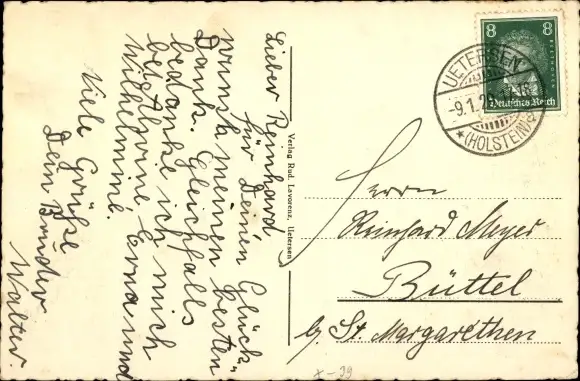 Lieber Reinhard
für Deinen Glück-
wunsch meinen besten
Dank. Gleichfalls
bedanke ich mich
bei Alwine, Erna und
Wilhelmine.
Viele Grüße
Dein Bruder
Walter
Verlag Rud. Lavorenz, Uetersen
8 8
Deutsches Reich
UETERSEN
-9.1.29
*(HOLSTEIN)
Herrn
Reinhard Meyer
Büttel
b/ St. Margarethen
x-39